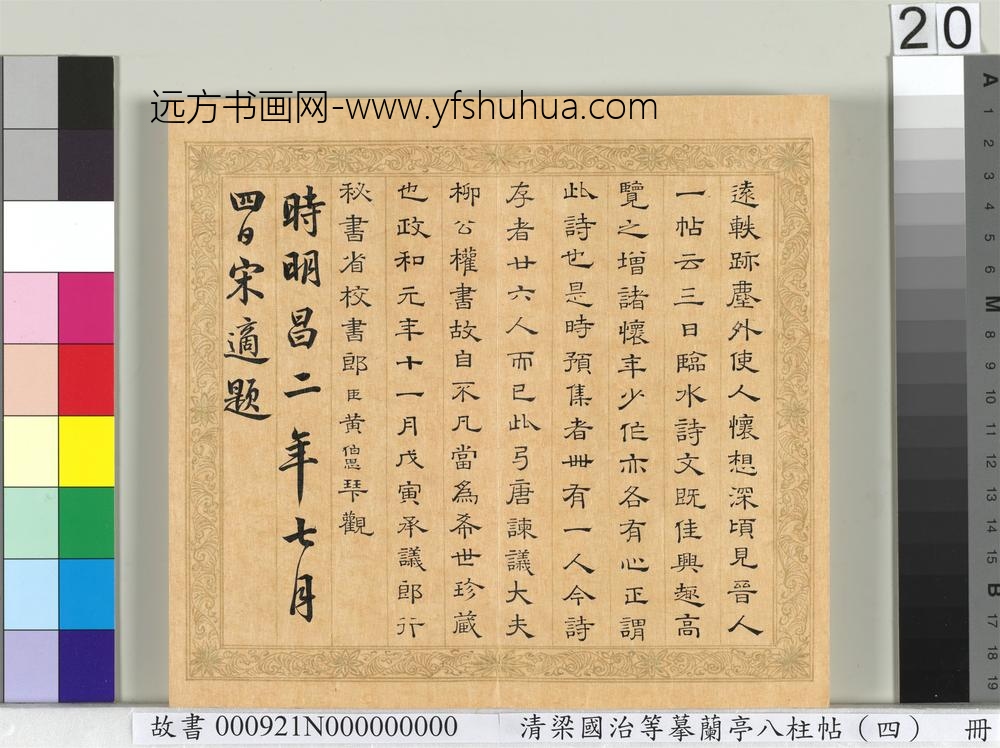 20
远方书画网-www.yfshuhua.com
遠軼跡塵外使人懷想深頃見晉人
一帖云三日臨水詩文既佳興趣高
覽之增諸懷年少作亦各有心正謂
此詩也是時預集者卌有一人今詩
存者廿六人而已此弓唐諫議大夫
柳公權書故自不凡當為希世珍藏
也政和元年十一月戊寅承議郎行
秘書省校書郎臣黃伯思琴觀
時明昌二年七月
四日宋適題
A
1
2
3
4
5
6
M
8
9
10
11
12
13
14
15
B
17
18
19
故書 000921N000000000 清梁國治等摹蘭亭八柱帖（四） 冊